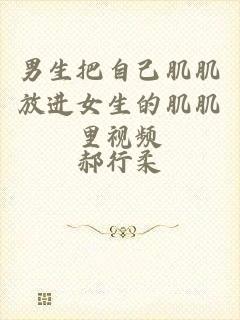 男生把自己肌肌
放进女生的肌肌
里视频
郝行柔